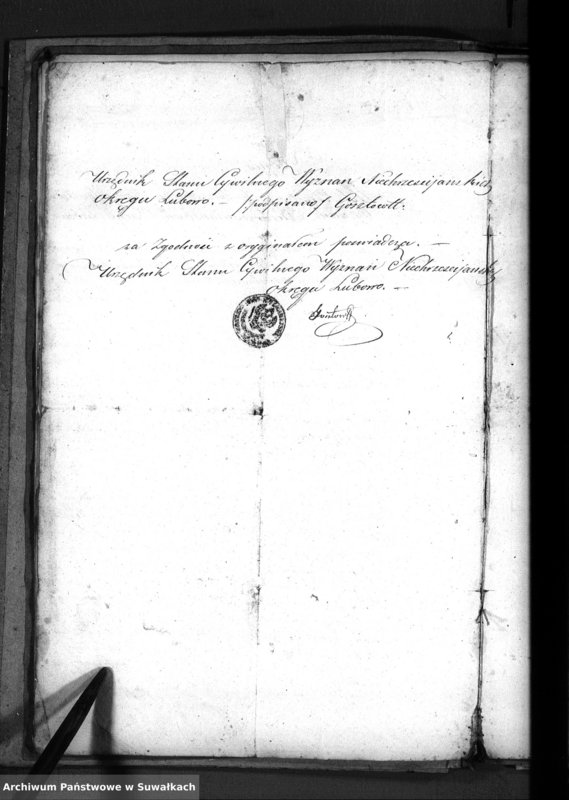 Urzędnik Stanu Cywilnego Wyznań Niechrześcijańskich
Okręgu Lubowo. – (podpisano) Gosztowtt.
za Zgodność z oryginałem poświadcza. –
Urzędnik Stanu Cywilnego Wyznań Niechrześcijańskich
Okręgu Lubowo. –
Gosztowtt
Archiwum Państwowe w Suwałkach